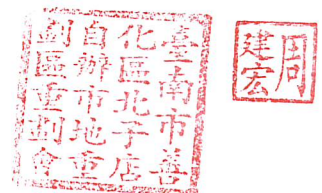 臺南市善
化區北子店
自辦市地重
劃區重劃會
周
建宏